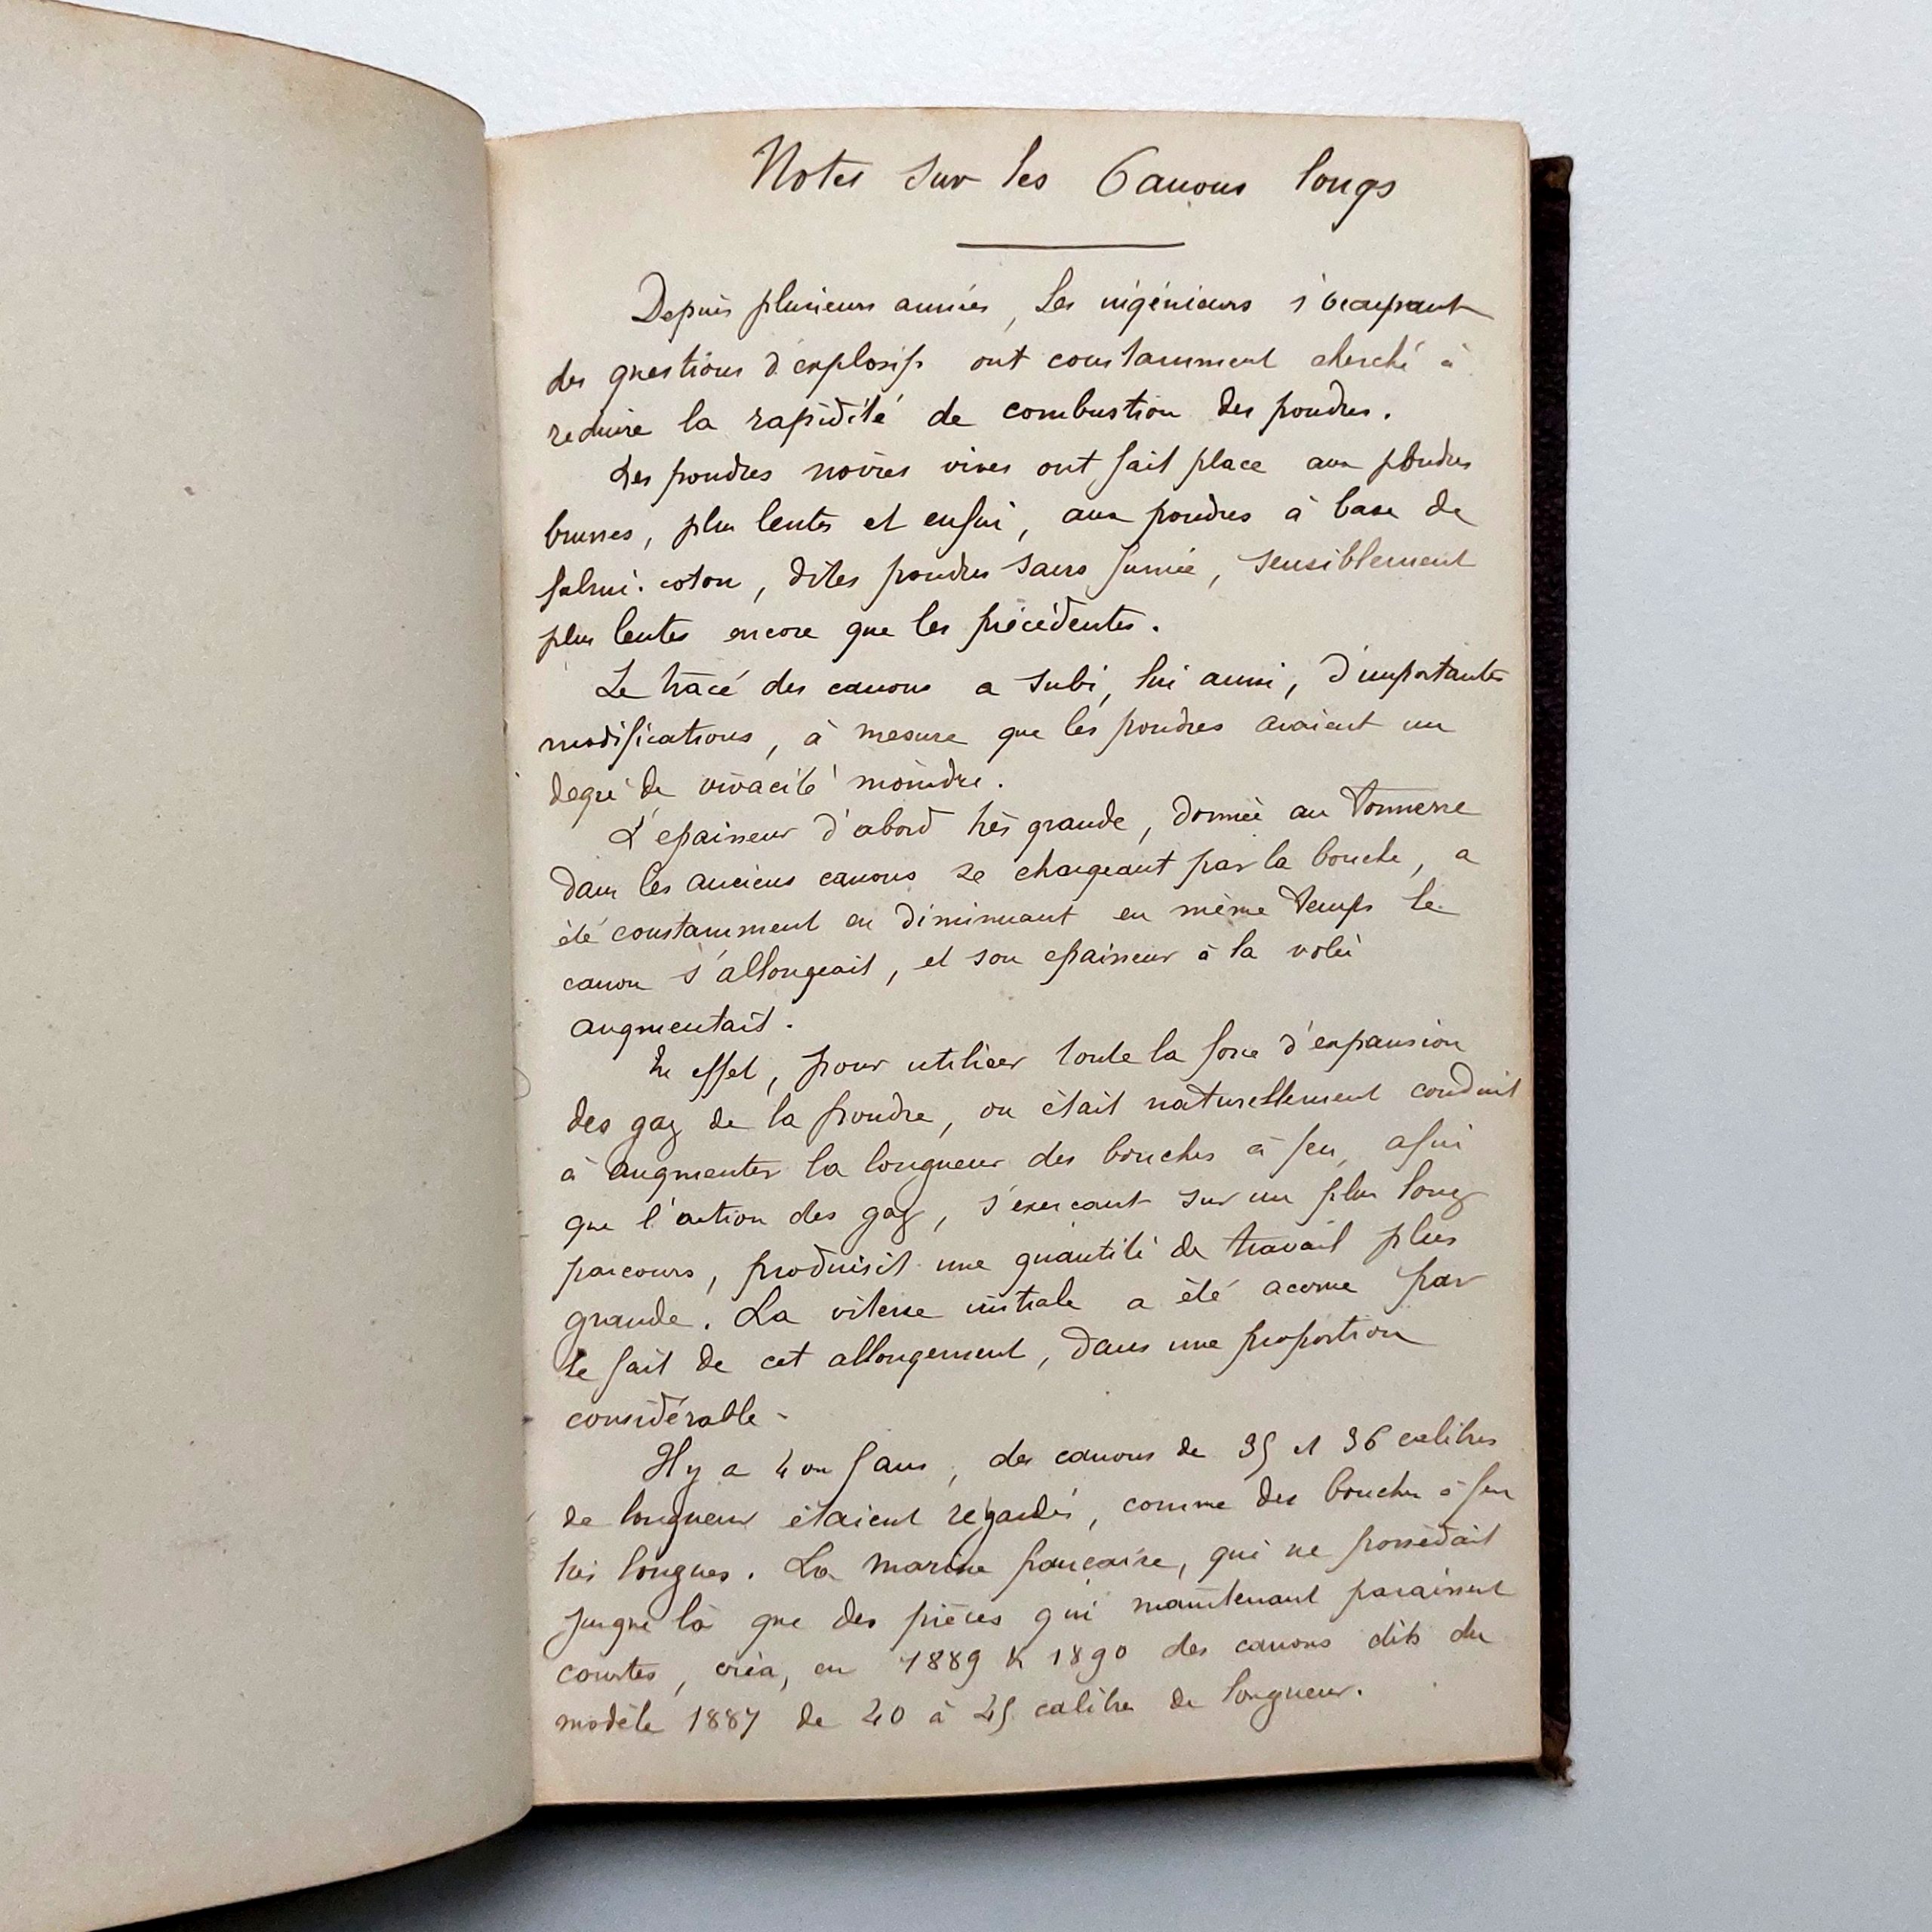 Notes sur les Canons longs
Depuis plusieurs années, les ingénieurs s'occupant
des questions d'explosifs ont constamment cherché à
reduire la rapidité de combustion des poudres.
Les poudres noires vives ont fait place aux poudres
brunes, plus lentes et enfin, aux poudres à base de
fulmi-coton, dites poudres sans fumée, sensiblement
plus lentes encore que les précédentes.
Le tracé des canons a subi, lui aussi, d'importantes
modifications, à mesure que les poudres avaient un
degré de vivacité moindre.
L'epaisseur d'abord très grande, donnée au tonnerre
dans les anciens canons se chargeant par la bouche, a
été constamment en diminuant en même temps le
canon s'allongeait, et son epaisseur à la volée
augmentait.
En effet, pour utiliser toute la force d'expansion
des gaz de la poudre, on était naturellement conduit
à augmenter la longueur des bouches à feu, afin
que l'action des gaz, s'exercant sur un plus long
parcours, produisit une quantité de travail plus
grande. La vitesse initiale a été accrue par
le fait de cet allongement, dans une proportion
considérable.
Il y a 4 ou 5 ans, des canons de 35 et 36 calibres
de longueur étaient regardés, comme des bouches à feu
très longues. La marine française, qui ne possédait
jusque là que des pièces qui maintenant paraissent
courtes, créa, en 1889 & 1890 des canons dits du
modèle 1887 de 40 à 45 calibres de longueur.